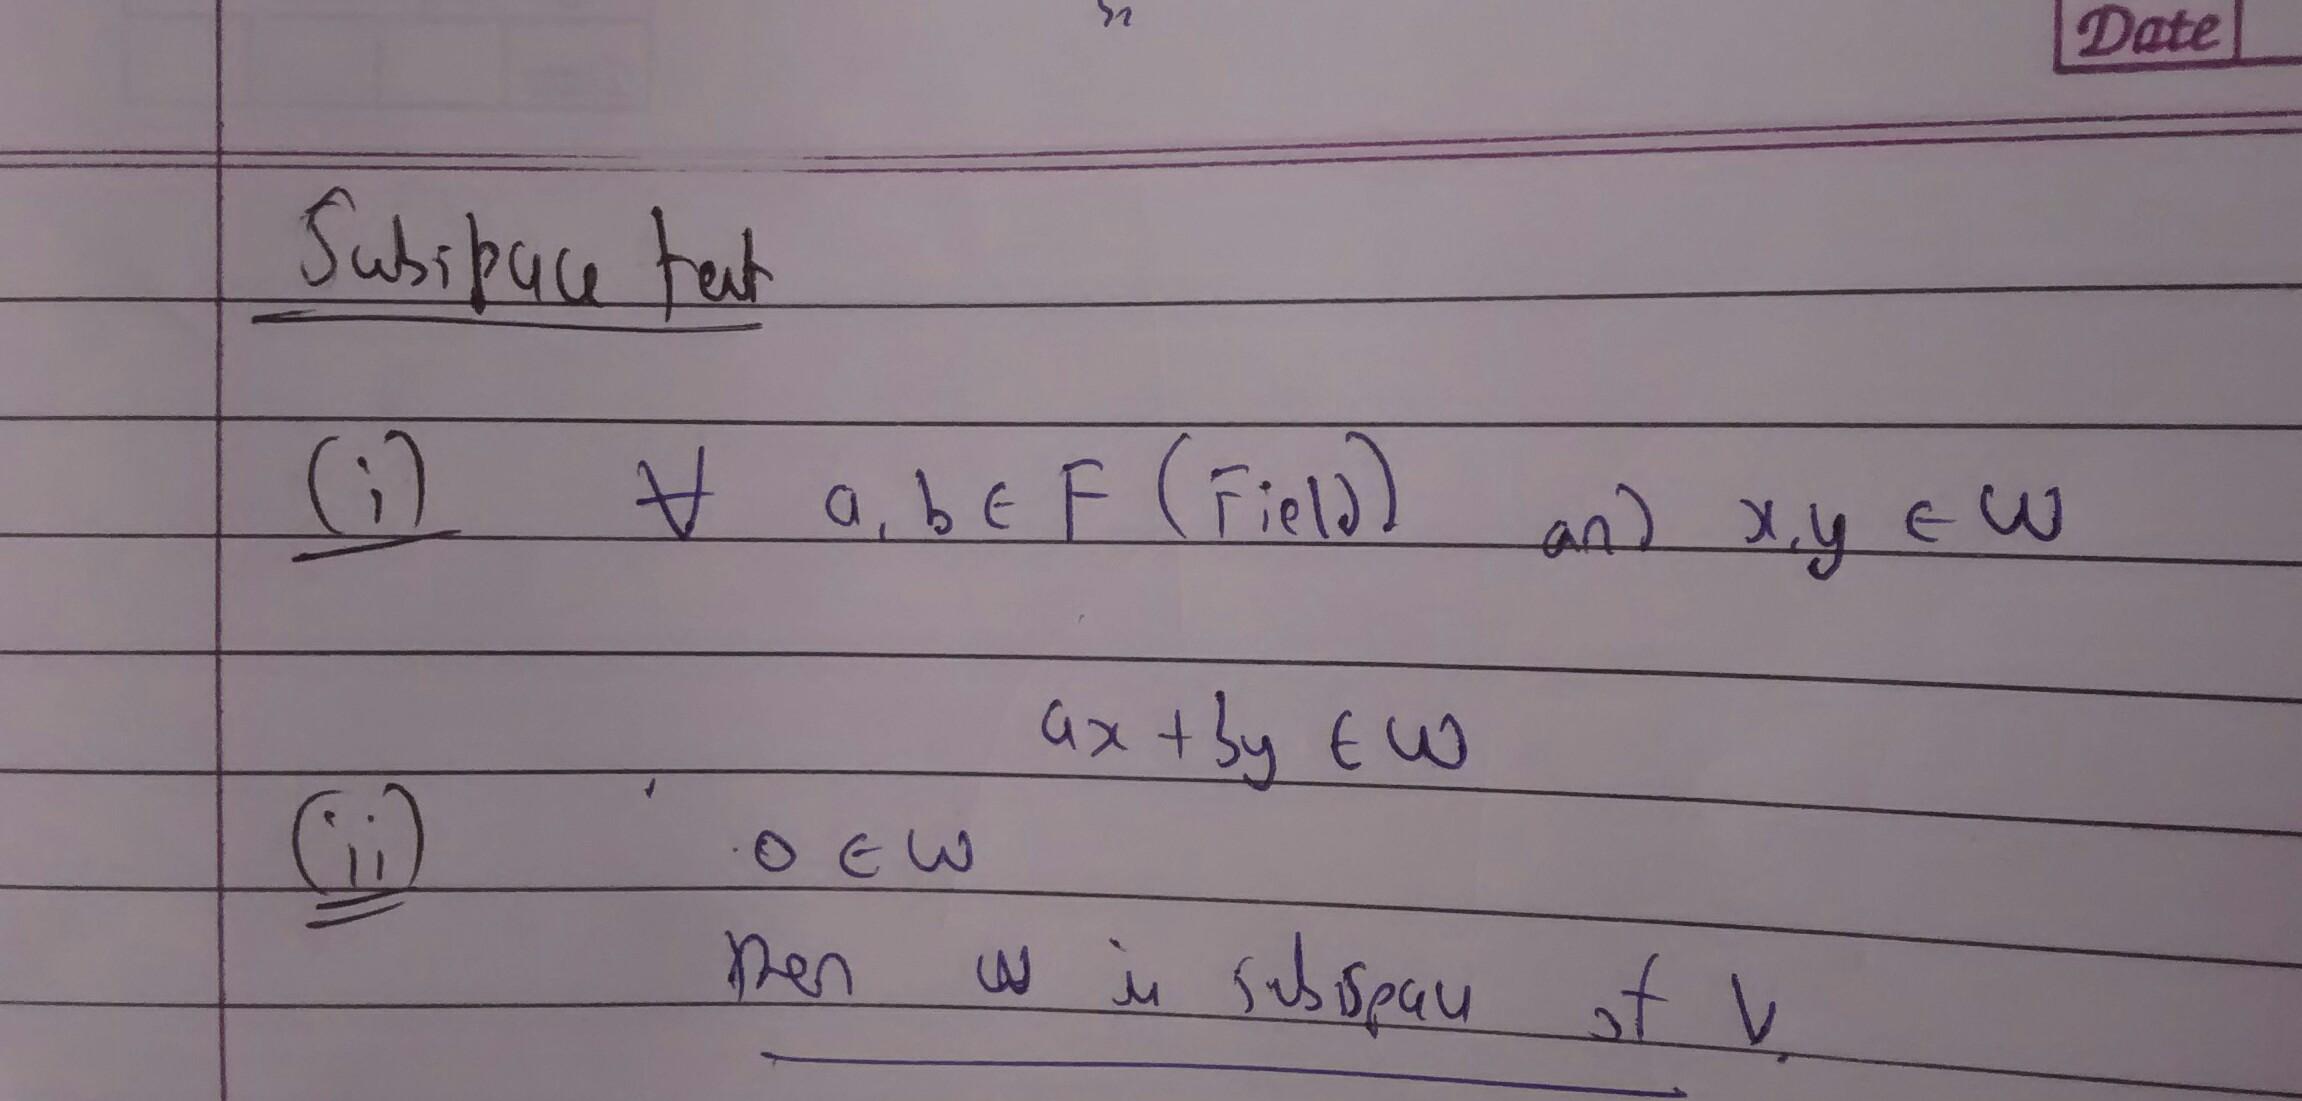 Date
Subspace test
(i) ∀ a, b ∈ F (Field) and x, y ∈ W
ax + by ∈ W
(ii) 0 ∈ W
then W is subspace of V.